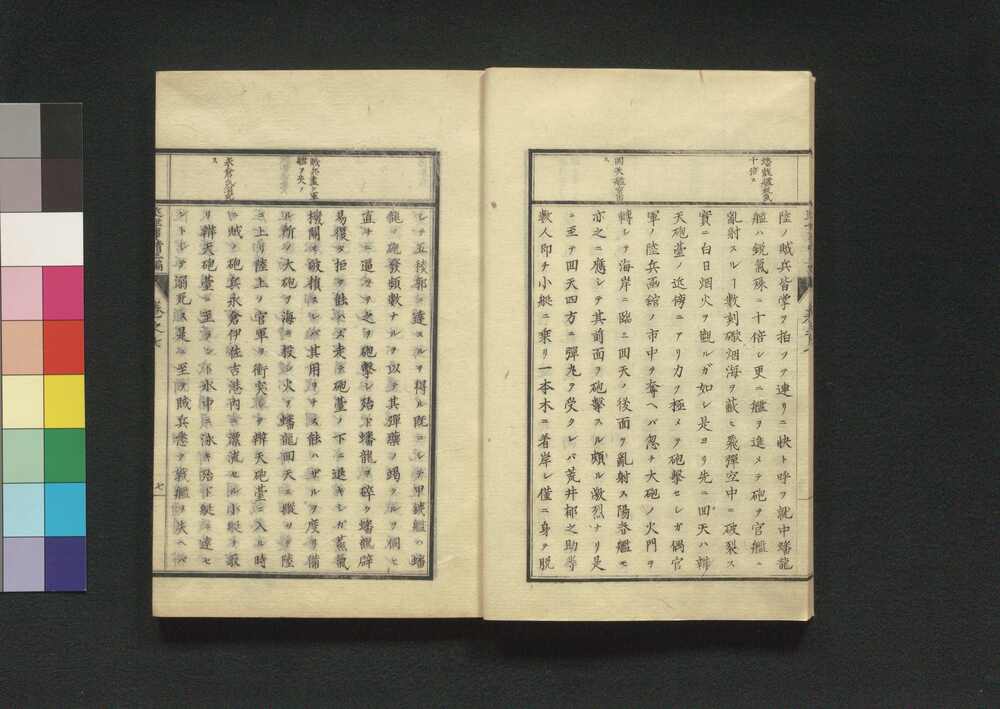 蟠龍艦放氣
十倍ス
陸ノ賊兵皆掌ヲ拍ツテ連リニ快ト呼フ就中蟠龍
艦ハ鋭氣殊ニ十倍シ更ニ艦ヲ進メテ砲ヲ官艦ニ
亂射スルヿ數刻礮烟海ヲ蔽ヒ飛彈空中ニ破裂ス
實ニ白日烟火ヲ觀ルガ如シ是ヨリ先ニ回天ハ辨
天砲臺ノ近傍ニアリ力ヲ極メテ砲擊セシガ偶官
軍ノ陸兵函館ノ市中ヲ奪ヘバ忽チ大砲ノ火門ヲ
轉シテ海岸ニ臨ミ回天ノ後面ヲ亂射ス陽春艦モ
亦之ニ應シテ其前面ヲ砲擊スル頗ル激烈ナリ是
ニ至テ回天四方ニ彈丸ヲ受クレバ荒井郁之助等
數人即チ小艇ニ乘リ一本木ニ着岸シ僅ニ身ヲ脱
シテ五稜郭ニ達スルヲ得ル既ニシテ甲鐵艦ハ蟠
龍ノ砲發頻數ナルヲ以テ其彈藥ノ竭クルヲ伺ヒ
直チニ逼ツテ之ヲ砲擊シ殆ド蟠龍ヲ碎ク蟠龍辟
易復タ拒ク能ハズ走テ砲臺ノ下ニ退キシガ蒸氣
機關ヲ破損シ其用ヲナス能ハザルヲ度リ備
ル所ノ大砲ヲ海ニ投シ火ヲ蟠龍回天ニ縱ツテ陸
ニ上リ陸上ノ官軍ヲ衝突シテ辨天砲臺ニ入ル時
ニ賊ノ砲兵永倉伊佐吉港內ニ漂流セル小艇ヲ取
リ辨天砲臺ニ至ラント水中ニ泳キ殆ド艇ニ達セ
ントシテ溺死ス是ニ至テ賊兵悉ク戰艦ヲ失ヘバ
永倉氏溺死
ス
七